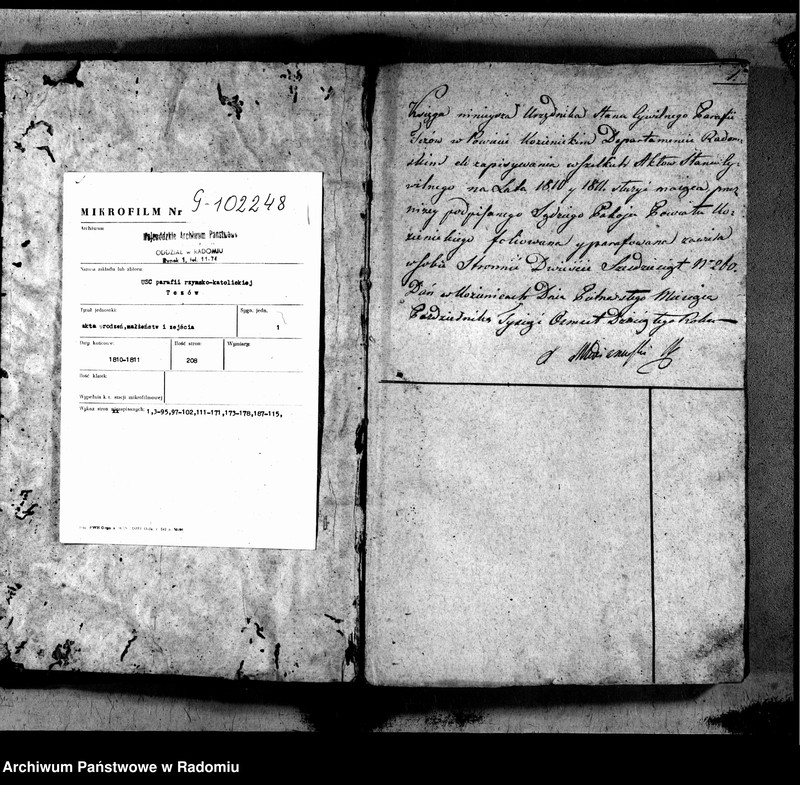 MIKROFILM Nr G-102248
Archiwum
Wojewódzkie Archiwum Państwowe
ODDZIAŁ w RADOMIU
Rynek 1, tel. 11-74
Nazwa zakładu lub zbioru:
USC parafii rzymsko-katolickiej
Tczów
Tytuł jednostki:
Sygn. jedn.
akta urodzeń,małżeństw i zejścia
1
Daty końcowe:
Ilość stron:
Wymiary:
1810-1811
208
Ilość klatek:
Wypełnia k.t. stacji mikrofilmowej
Wykaz stron zapisanych: 1,3-95,97-102,111-171,173-178,187-115,
1.
Księga ninieysza Urzędnika Stanu Cywilnego Parafii
Tczów w Powiecie Kozienickim Departamencie Radom-
skim do zapisywania wszelkich Aktów Stanu Cy-
wilnego na Lata 1810 y 1811. służyć maiąca, przez
niżey podpisanego Sędziego Pokoju Powiatu Ko-
zienickiego foliowana y parafowana zawiera
w sobie Stronnic Dwieście Sześćdziesiąt Nro 260.
Dań w Kozienicach Dnia Miesiąca
Października Tysiąc Ośmset Dziesiątego Roku
Archiwum Państwowe w Radomiu